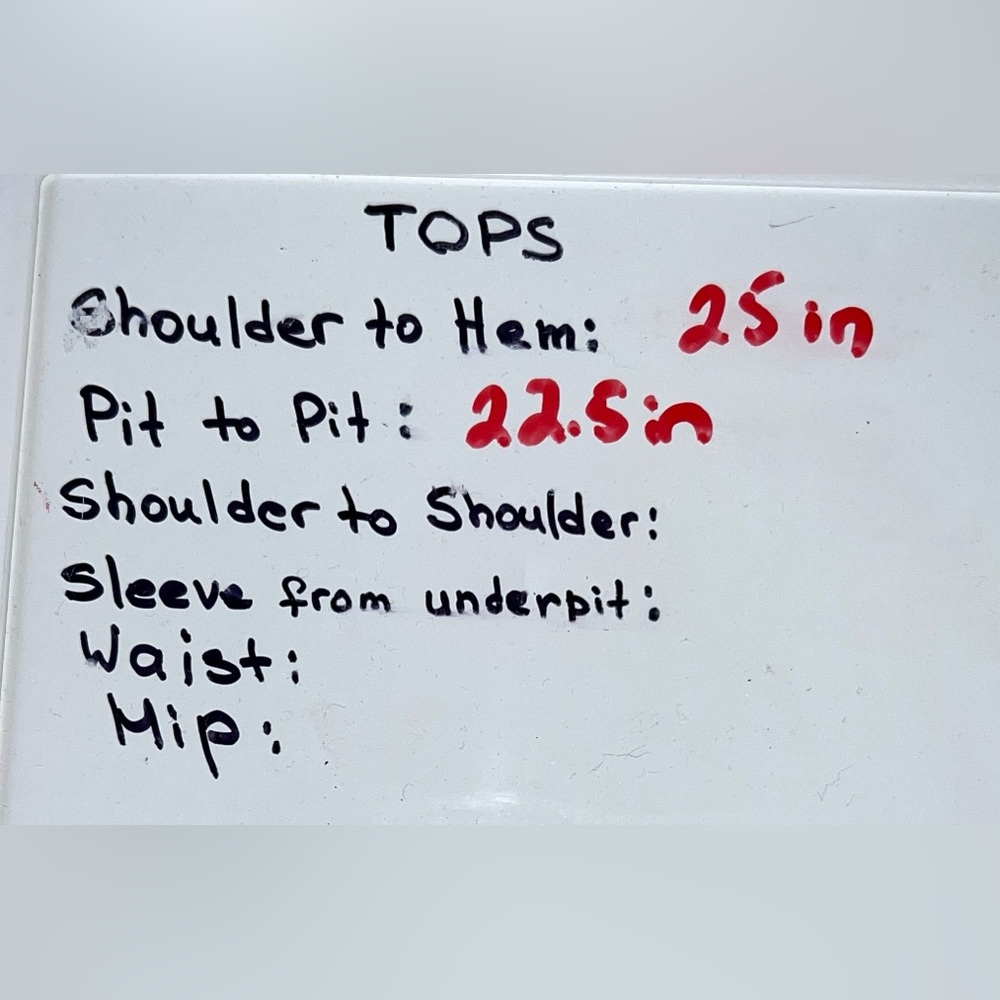 TOPS
Shoulder to Hem: 25 in
Pit to Pit: 22.5 in
Shoulder to Shoulder:
Sleeve from underpit:
Waist:
Hip: